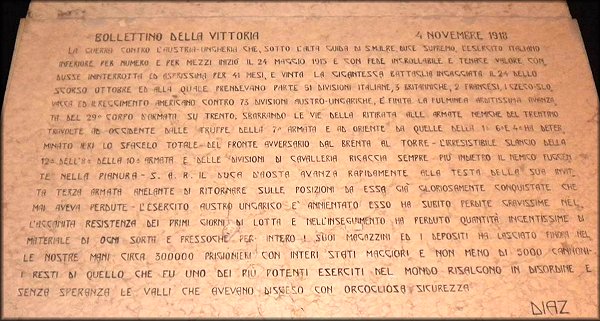 BOLLETTINO DELLA VITTORIA 4 NOVEMBRE 1918
LA GUERRA CONTRO L'AUSTRIA-UNGHERIA CHE, SOTTO L'ALTA GUIDA DI S.M. IL RE, DUCE SUPREMO, L'ESERCITO ITALIANO
INFERIORE PER NUMERO E PER MEZZI INIZIÒ IL 24 MAGGIO 1915 E CON FEDE INCROLLABILE E TENACE VALORE CON,
DUSSE ININTERROTTA ED ASPRISSIMA PER 41 MESI, E VINTA LA GIGANTESCA BATTAGLIA INGAGGIATA IL 24 DELLO
SCORSO OTTOBRE ED ALLA QUALE PRENDEVANO PARTE 51 DIVISIONI ITALIANE, 3 BRITANNICHE, 2 FRANCESI, 1 CZECO-SLO,
VACCA ED IL REGGIMENTO AMERICANO CONTRO 73 DIVISIONI AUSTRO-UNGARICHE, È FINITA LA FULMINEA ARDITISSIMA AVANZA,
TA DEL 29° CORPO D'ARMATA SU TRENTO, SBARRANDO LE VIE DELLA RITIRATA ALLE ARMATE NEMICHE DEL TRENTINO
TRAVOLTE AD OCCIDENTE DALLE TRUPPE DELLA 7ª ARMATA E AD ORIENTE DA QUELLE DELLA 1ª 6ª E 4ª HA DETER,
MINATO IERI LO SFACELO TOTALE DEL FRONTE AVVERSARIO DAL BRENTA AL TORRE L'IRRESISTIBILE SLANCIO DELLA
12ª DELL'8ª DELLA 10ª ARMATA E DELLE DIVISIONI DI CAVALLERIA RICACCIA SEMPRE PIÙ INDIETRO IL NEMICO FUGGEN
TE NELLA PIANURA S. A. R. IL DUCA D'AOSTA AVANZA RAPIDAMENTE ALLA TESTA DELLA SUA INVIT,
TA TERZA ARMATA ANELANTE DI RITORNARE SULLE POSIZIONI DA ESSA GIÀ GLORIOSAMENTE CONQUISTATE CHE
MAI AVEVA PERDUTE L'ESERCITO AUSTRO UNGARICO E' ANNIENTATO ESSO HA SUBITO PERDITE GRAVISSIME NEL,
L'ACCANITA RESISTENZA DEI PRIMI GIORNI DI LOTTA E NELL'INSEGUIMENTO HA PERDUTO QUANTITÀ INGENTISSIME DI
MATERIALE DI OGNI SORTA E PRESSOCHE PER INTERO I SUOI MAGAZZINI ED I DEPOSITI HA LASCIATO FINORA NEL,
LE NOSTRE MANI CIRCA 300000 PRIGIONIERI CON INTERI STATI MAGGIORI E NON MENO DI 5000 CANNONI
I RESTI DI QUELLO CHE FU UNO DEI PIÙ POTENTI ESERCITI NEL MONDO RISALGONO IN DISORDINE E
SENZA SPERANZA LE VALLI CHE AVEVANO DISCESO CON ORGOGLIOSA SICUREZZA
DIAZ